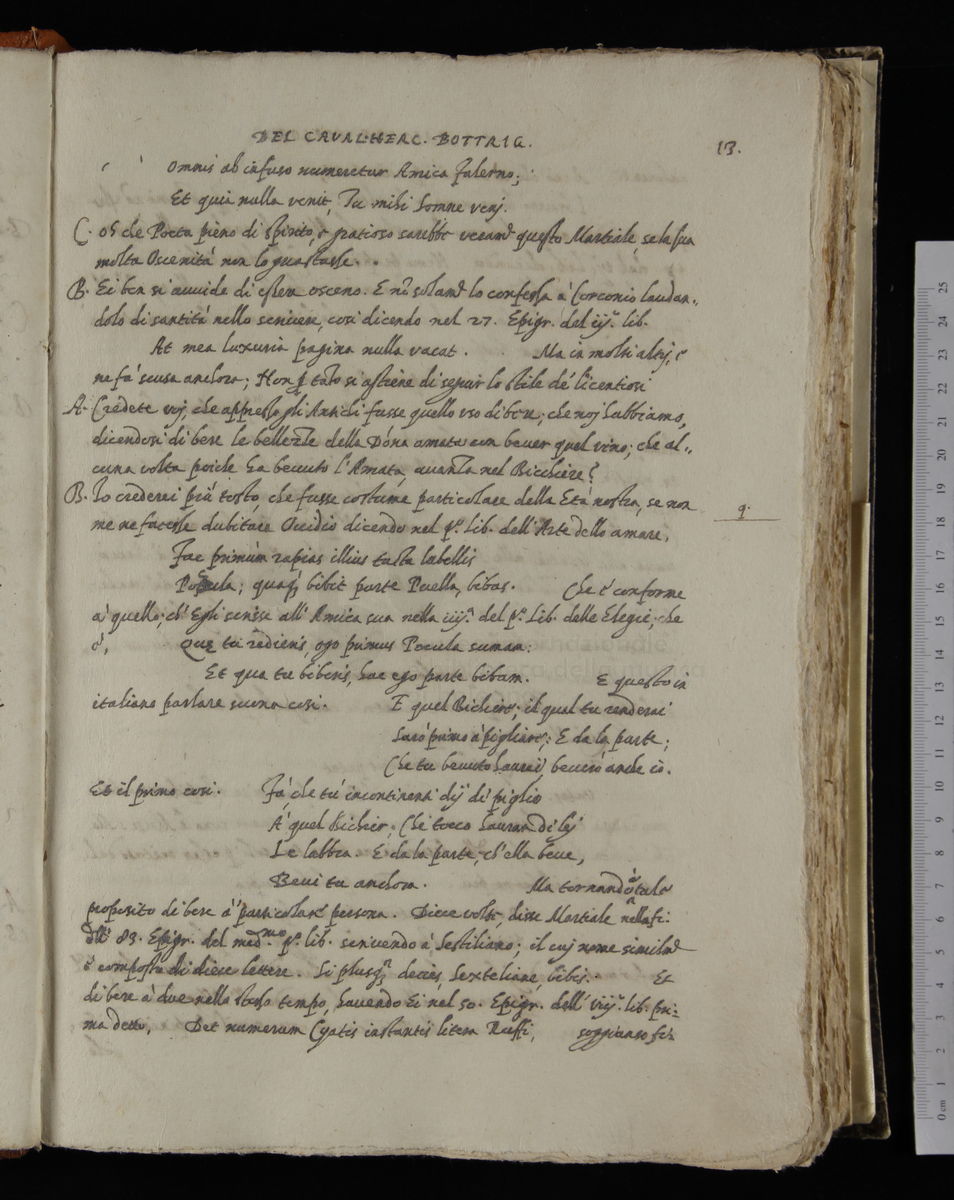 DEL CAVAL. HERC. BOTTRIG.
13.
Omnis ab infuso numeretur Amica falerno;
Et quia nulla venit, Tu mihi Somne venj.
C. Oh che Poeta pieno di spirito, e gratioso sarebbe veram.te questo Martiale, se la sua
molta Oscenità non lo guastasse.
B. Ei ben si auuide di essere osceno. E nõ solam.te lo confessa à Corconio laudan„
dolo di santità nello scriuere, così dicendo nel 27. Epigr. del iij.º lib.
At mea luxuria pagina nulla vacat. Ma in molti altrj, e
ne fà scusa anchora; Non p tãto si astiene di seguir lo stile dé licentiosi
A. Credete voj, che appresso gli Antichi fusse quello vso di bere, che noj habbiamo,
dicendosi di bere le bellezze della Dõna amata con beuer quel vino; che al„
cuna volta poiche ha beuuto l'Amata, auanza nel Bicchiere?
B. Io crederei più tosto, che fusse costume particolare della Età nostra, se non
me ne facesse dubitare Ouidio dicendo nel p.º Lib. dell'Arte dello amare,
9.
Fac primùm rapias illius tacta labellis
Pocula; quaq3 bibit parte Puella, bibas. Che è conforme
à quello; ch'Egli scrisse all'Amica sua nella iiij.ª del p.º Lib. delle Elegie; che
è, Que tu redieris, ego primus Pocula sumam:
Et qua tu biberis, hac ego parte bibam. E questo in
italiano parlare suona così. E quel Bichiere; il qual tu renderai
Sarò primo à pigliare; E da la parte;
Che tu beuuto haurai, beuerò anche io.
Et il primo così. Fà, che tù incontinenti dij di piglio
A' quel Bichier. Che tocco hauran di lej
Le labbra. E da la parte, ch'ella beue,
Beui tu anchora. Ma tornando à tale
proposito di bere à particolare persona. Diece volte, disse Martiale nella fi:
dll' 83. Epigr. del med.mo p.º lib. scriuendo à Sestiliano; il cuj nome similm.te
è composto di diece lettere. Si plusq3 decies, Sextiliane, bibis. Et
di bere à due nello stesso tempo, hauendo Ei nel 50. Epigr. dell' viij.º lib. pri=
ma detto, Det numerum Cyatis instantis litera Ruffi, soggiunse fi: